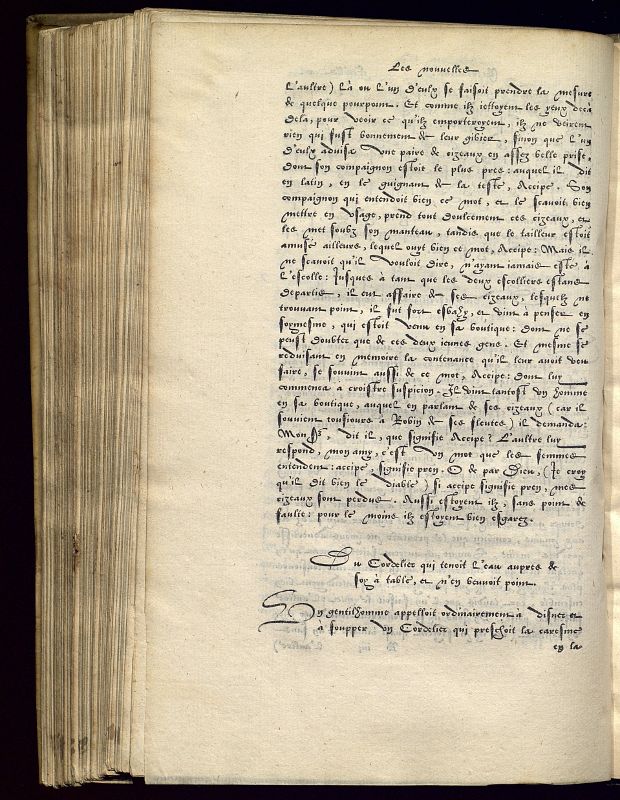 Les nouvelles
l'aultre) là ou l'un d'eulx se faisoit prendre la mesure
de quelque pourpoint. Et comme ilz iettoyent les yeux deçà
delà, pour veoir ce qu'ilz emporteroyent, ilz ne veirent
rien qui fust bonnement de leur gibier, sinon que l'un
d'eulx advisa une paire de cizeaux en assez belle prise,
dont son compaignon estoit le plus pres: auquel il dit
en latin, en le guignant de la teste, Accipe. Son
compaignon qui entendoit bien ce mot, et le sçavoit bien
mettre en usage, prend tout doulcement ces cizeaux, et
les met soubz son manteau, tandis que le tailleur estoit
amusé ailleurs, lequel ouyt bien ce mot, Accipe: Mais il
ne sçavoit qu'il vouloit dire, n'ayant iamais esté à
l'escolle: Iusques à tant que les deux escolliers estans
departis, il eut affaire de ses cizeaux, lesquelz ne
trouvant point, il fut fort esbahy, et vint à penser en
soymesme, qui estoit venu en sa boutique: dont ne se
peust doubter que de ces deux ieunes gens. Et mesme se
reduisant en memoire la contenance qu'il leur avoit veu
faire, se souvint aussi de ce mot, Accipe: dont luy
commença à croistre suspicion. Il vint tantost un homme
en sa boutique, auquel en parlant de ses cizeaux (car il
souvient tousiours à Robin de ses fleutes) il demanda:
Monsr, dit il, que signifie Accipe? L'aultre luy
respond, mon amy, c'est un mot que les femmes
entendent: accipe, signifie pren. O de par Dieu, (Ie croy
qu'il dit bien le diable) si accipe signifie pren, mes
cizeaux sont perdus. Aussi estoyent ilz, sans point de
faulte: pour le moins ilz estoyent bien esgarez.
Du Cordelier qui tenoit l'eau aupres de
soy à table, et n'en beuvoit point.
Un gentilhomme appelloit ordinairement à disner et
à soupper un Cordelier qui preschoit la caresme
en la